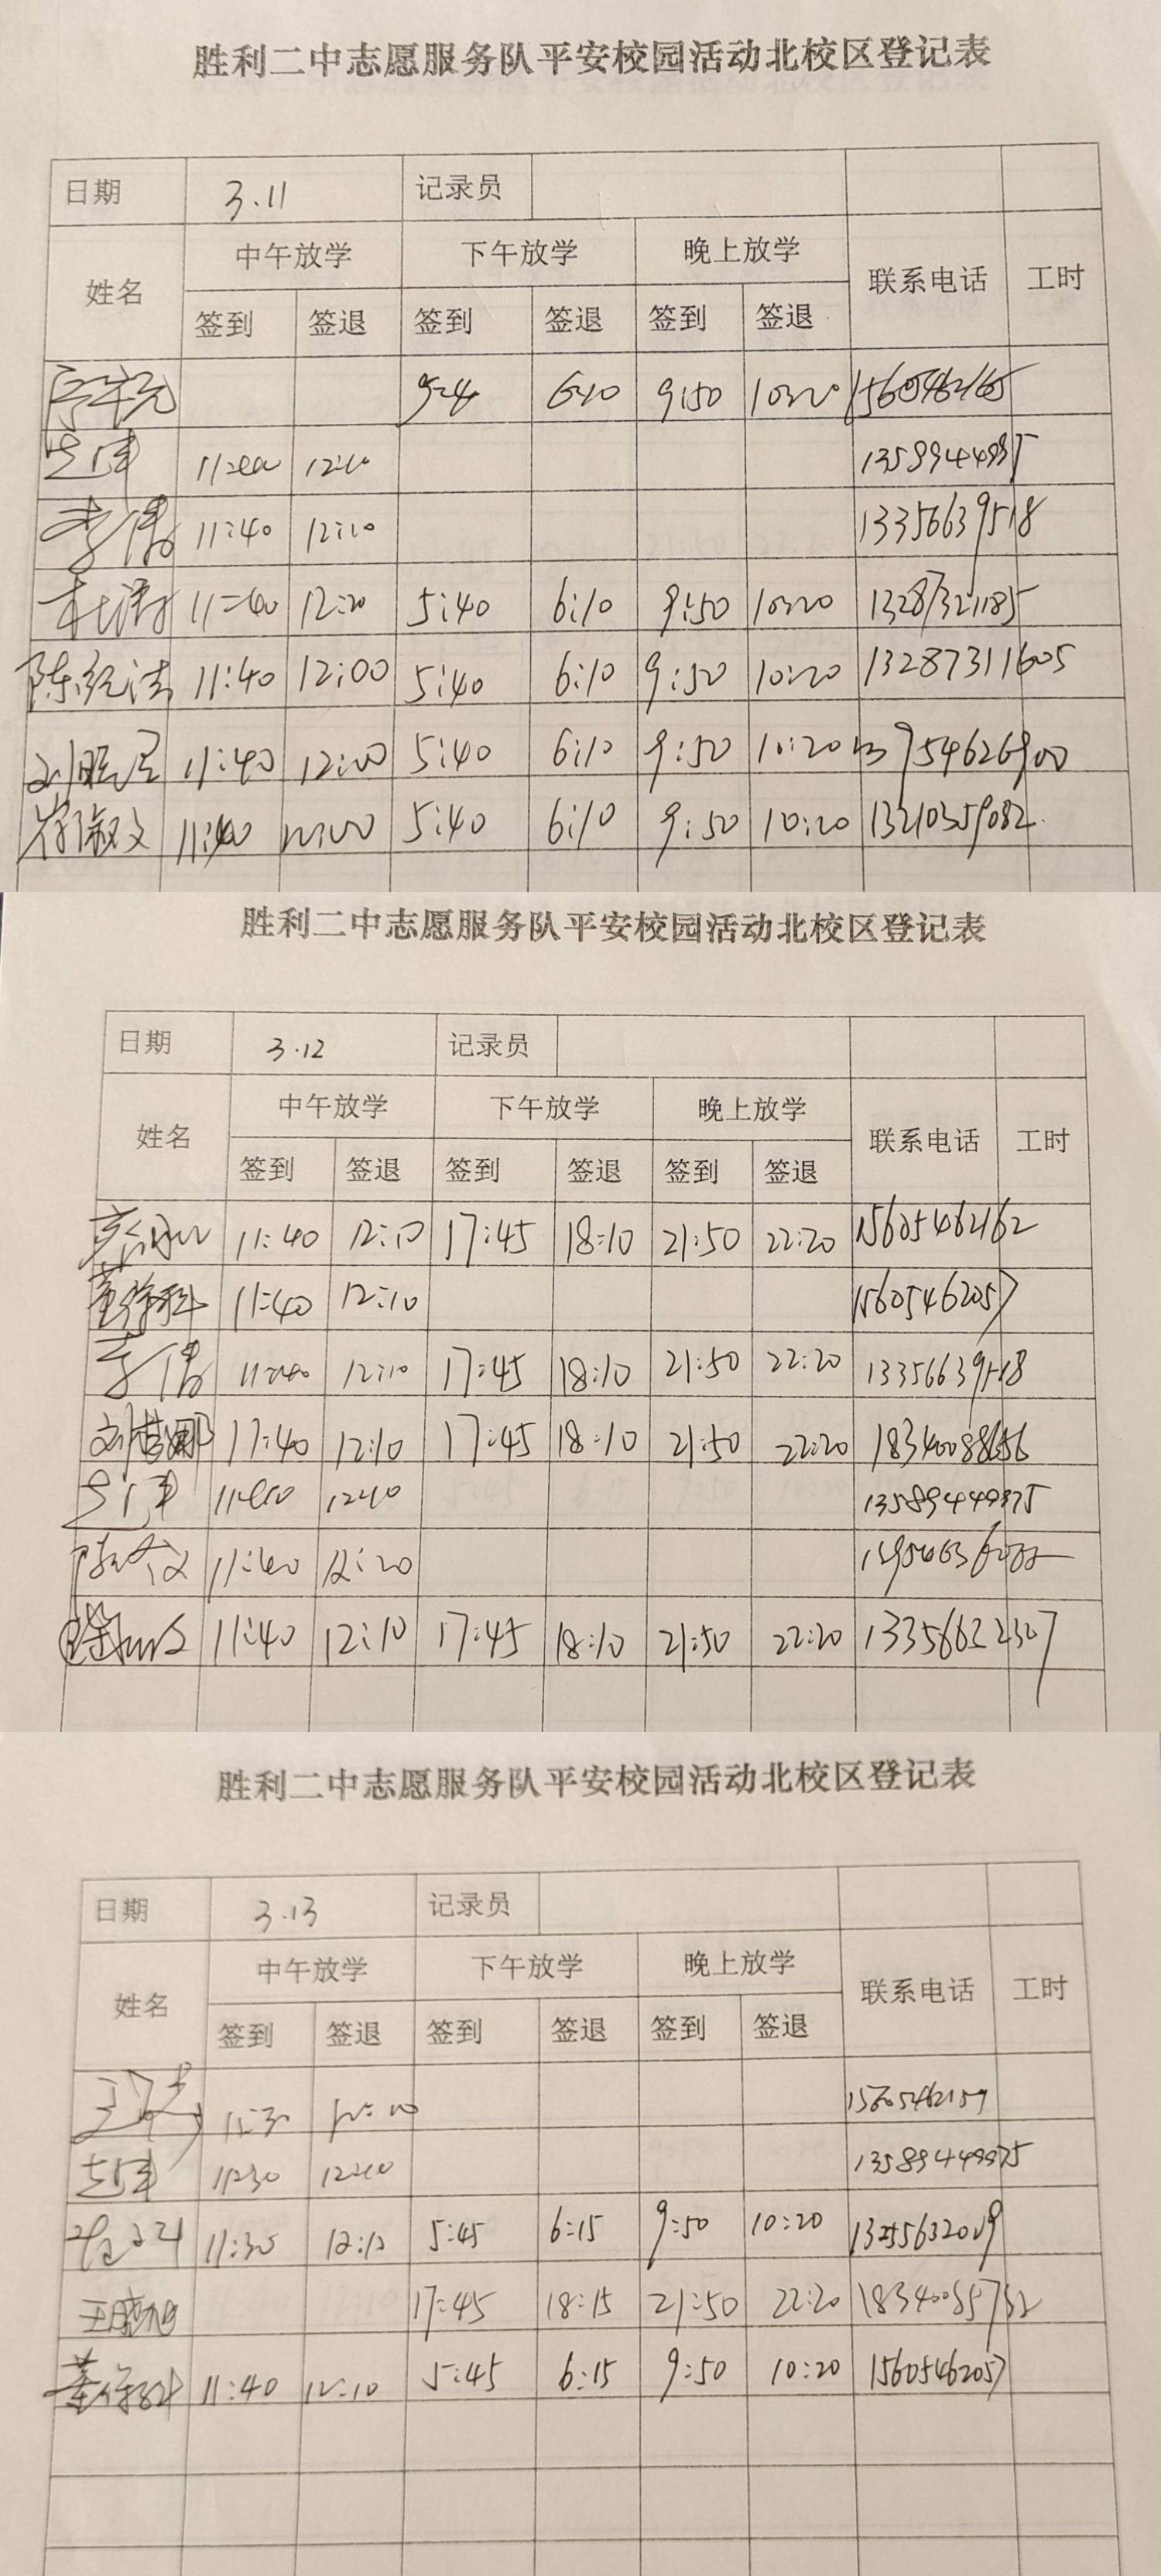 胜利二中志愿服务队平安校园活动北校区登记表
日期 3.11 记录员
姓名 中午放学 下午放学 晚上放学 联系电话 工时
签到 签退 签到 签退 签到 签退
6:10 9:50 10:20
12:10
李倩 11:40 12:10 13356639518
杜 11:40 12:20 5:40 6:10 9:50 10:20 13287321185
陈纪法 11:40 12:00 5:40 6:10 9:50 10:20 13287311605
刘 11:40 12:00 5:40 6:10 9:50 10:20 13754626900
崔淑文 11:40 12:00 5:40 6:10 9:50 10:20 13210359082
胜利二中志愿服务队平安校园活动北校区登记表
日期 3.12 记录员
姓名 中午放学 下午放学 晚上放学 联系电话 工时
签到 签退 签到 签退 签到 签退
11:40 12:10 17:45 18:10 21:50 22:20 15605462162
董 11:40 12:10 15605462057
李倩 11:40 12:10 17:45 18:10 21:50 22:20 13356639518
刘 娜 11:40 12:10 17:45 18:10 21:50 22:20 18340088656
12:10 13589449975
陈 11:40 12:20
11:40 12:10 17:45 18:10 21:50 22:20 13356632307
胜利二中志愿服务队平安校园活动北校区登记表
日期 3.13 记录员
姓名 中午放学 下午放学 晚上放学 联系电话 工时
签到 签退 签到 签退 签到 签退
王 11:30 12:00 15605462159
11:30 12:10 13589449975
11:30 12:10 5:45 6:15 9:50 10:20 13255632019
王晓旭 17:45 18:15 21:50 22:20 18340085732
董 11:40 12:10 5:45 6:15 9:50 10:20 15605462057